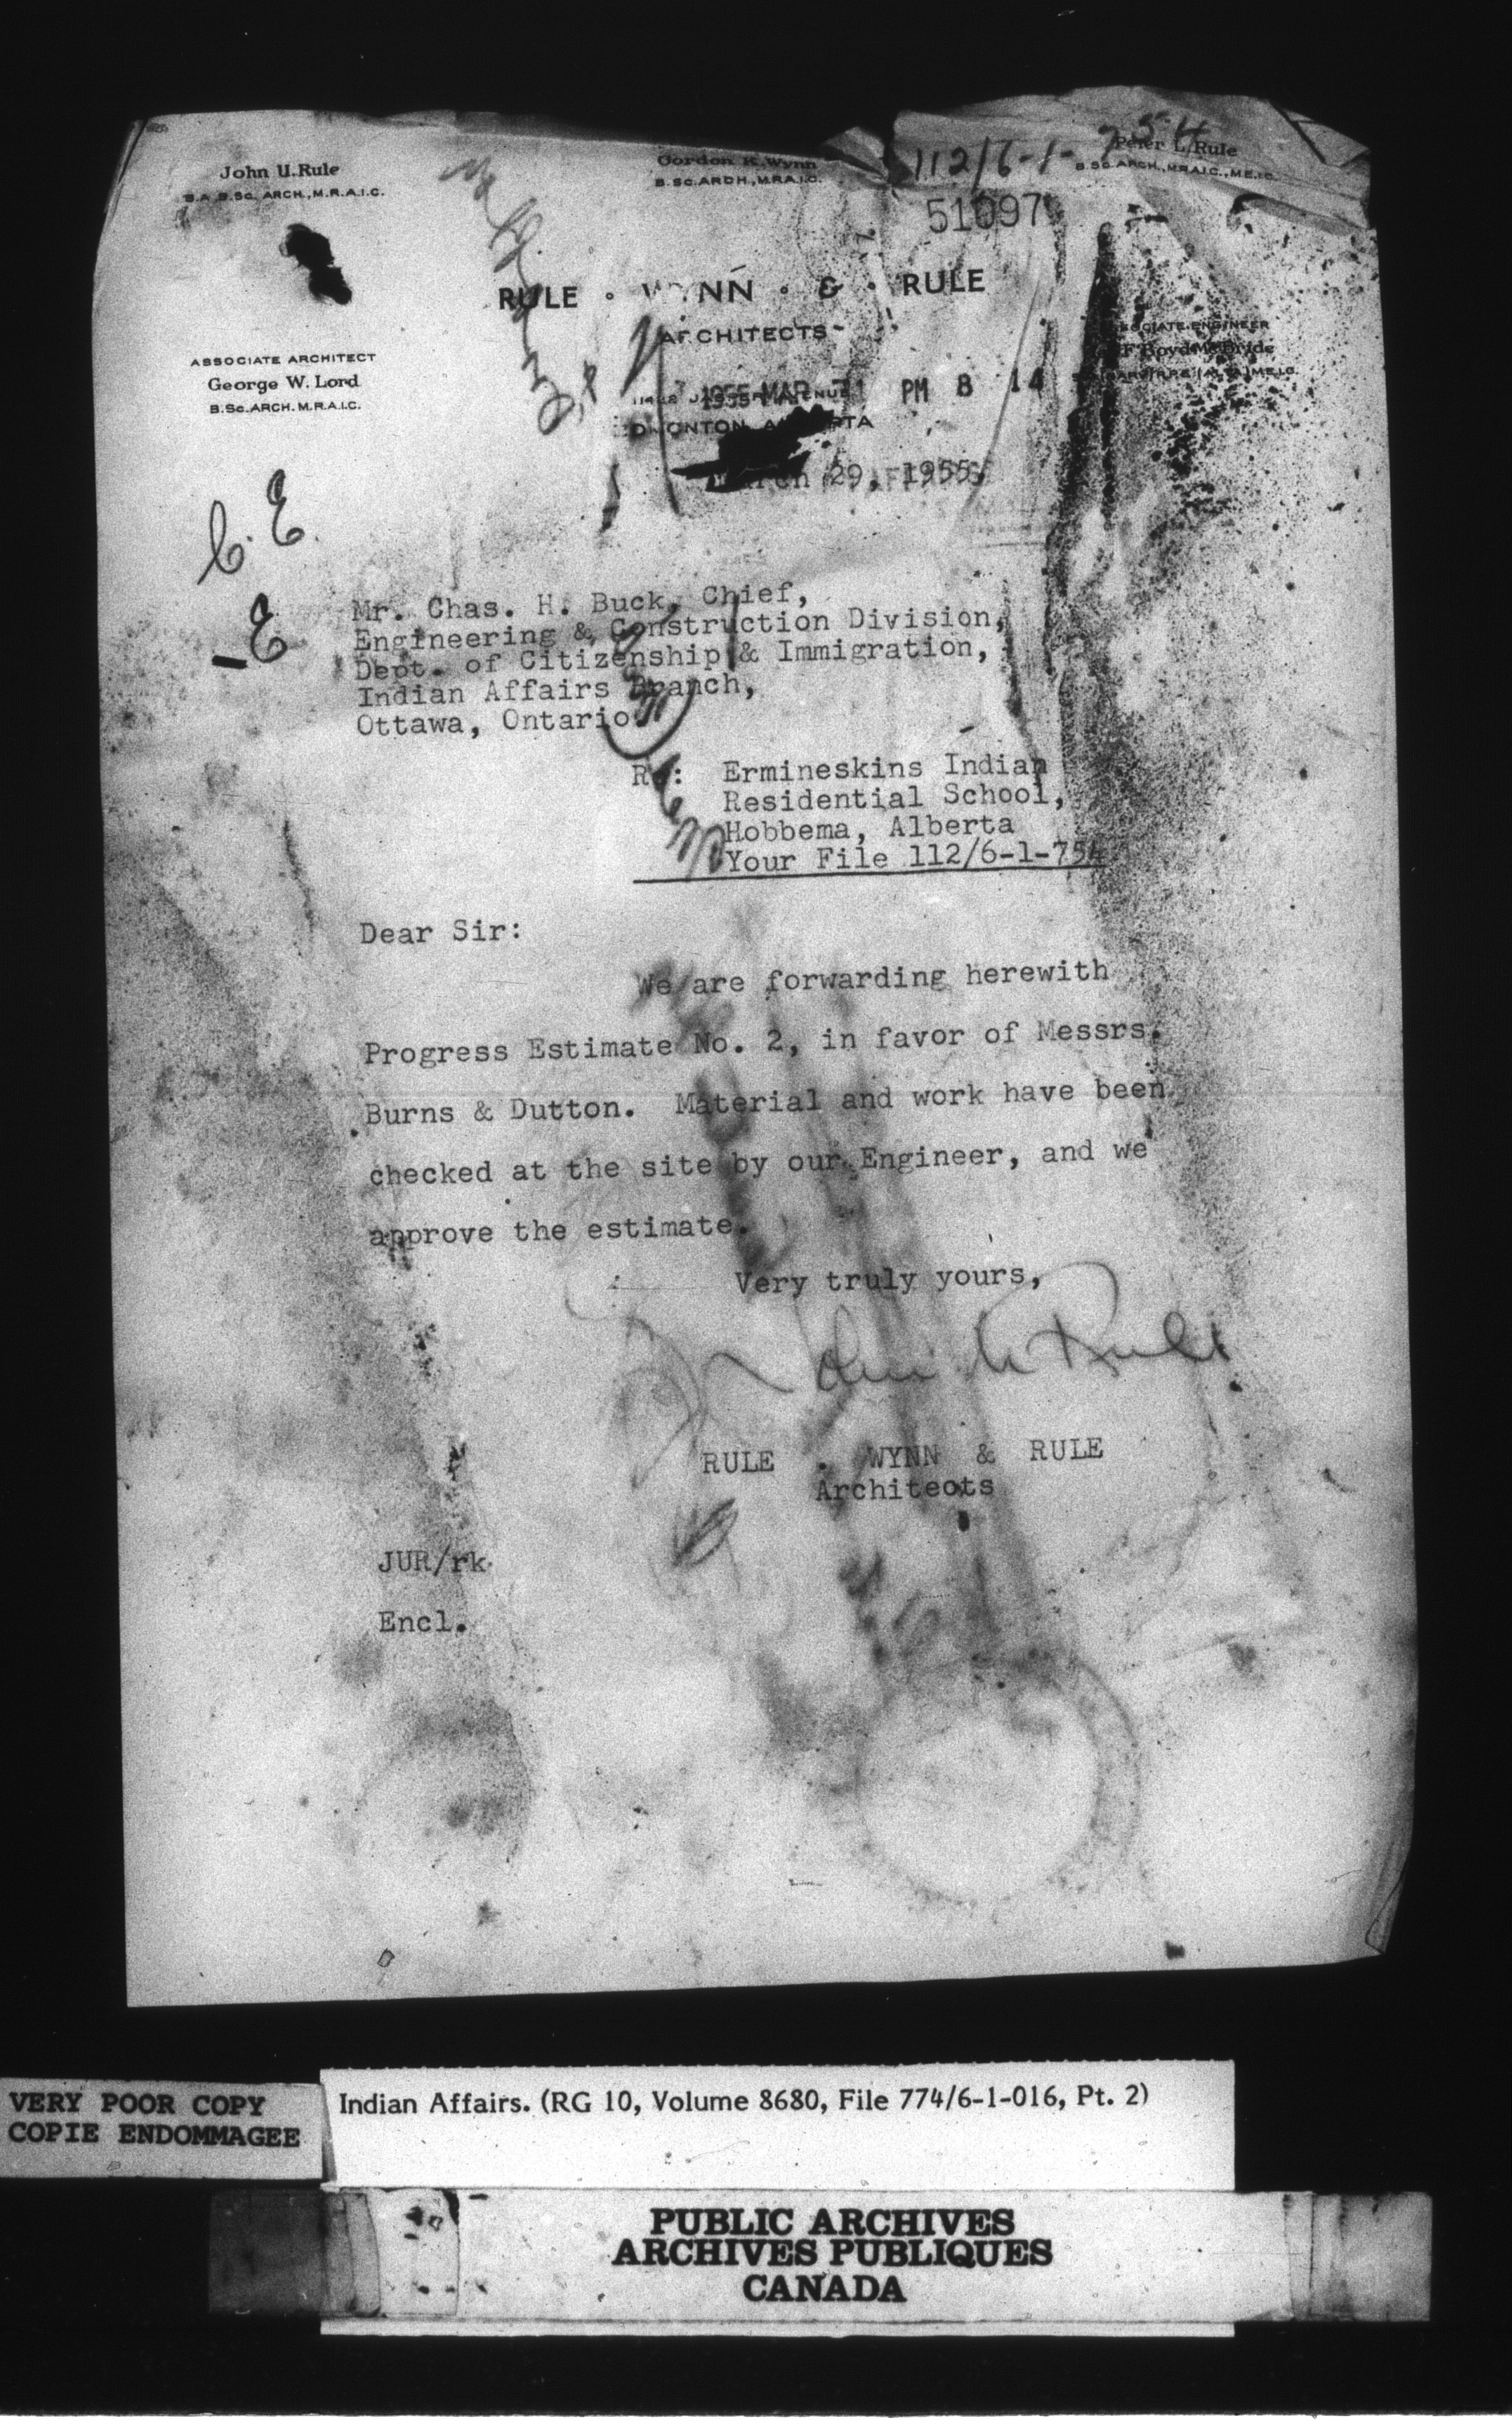 John U. Rule
B.A. B.Sc. ARCH., M.R.A.I.C.
Gordon K. Wynn
B.Sc. ARCH., M.R.A.I.C.
112/6-1-754
Peter L. Rule
B.SC. ARCH., M.R.A.I.C., M.E.I.C.
51097
RULE · WYNN · & · RULE
ARCHITECTS
ASSOCIATE ARCHITECT
George W. Lord
B.Sc. ARCH. M.R.A.I.C.
ASSOCIATE ENGINEER
F. Boyd McBride
JASPER AVENUE
1955 MAR 31 PM 8 14
EDMONTON, ALBERTA
March 29, 1955
C.E.
-E
Mr. Chas. H. Buck, Chief,
Engineering & Construction Division,
Dept. of Citizenship & Immigration,
Indian Affairs Branch,
Ottawa, Ontario.
Re: Ermineskins Indian
Residential School,
Hobbema, Alberta
Your File 112/6-1-754
Dear Sir:
We are forwarding herewith
Progress Estimate No. 2, in favor of Messrs.
Burns & Dutton. Material and work have been
checked at the site by our Engineer, and we
approve the estimate.
Very truly yours,
John U Rule
RULE . WYNN & RULE
Architects
JUR/rk
Encl.
VERY POOR COPY
COPIE ENDOMMAGEE
Indian Affairs. (RG 10, Volume 8680, File 774/6-1-016, Pt. 2)
PUBLIC ARCHIVES
ARCHIVES PUBLIQUES
CANADA